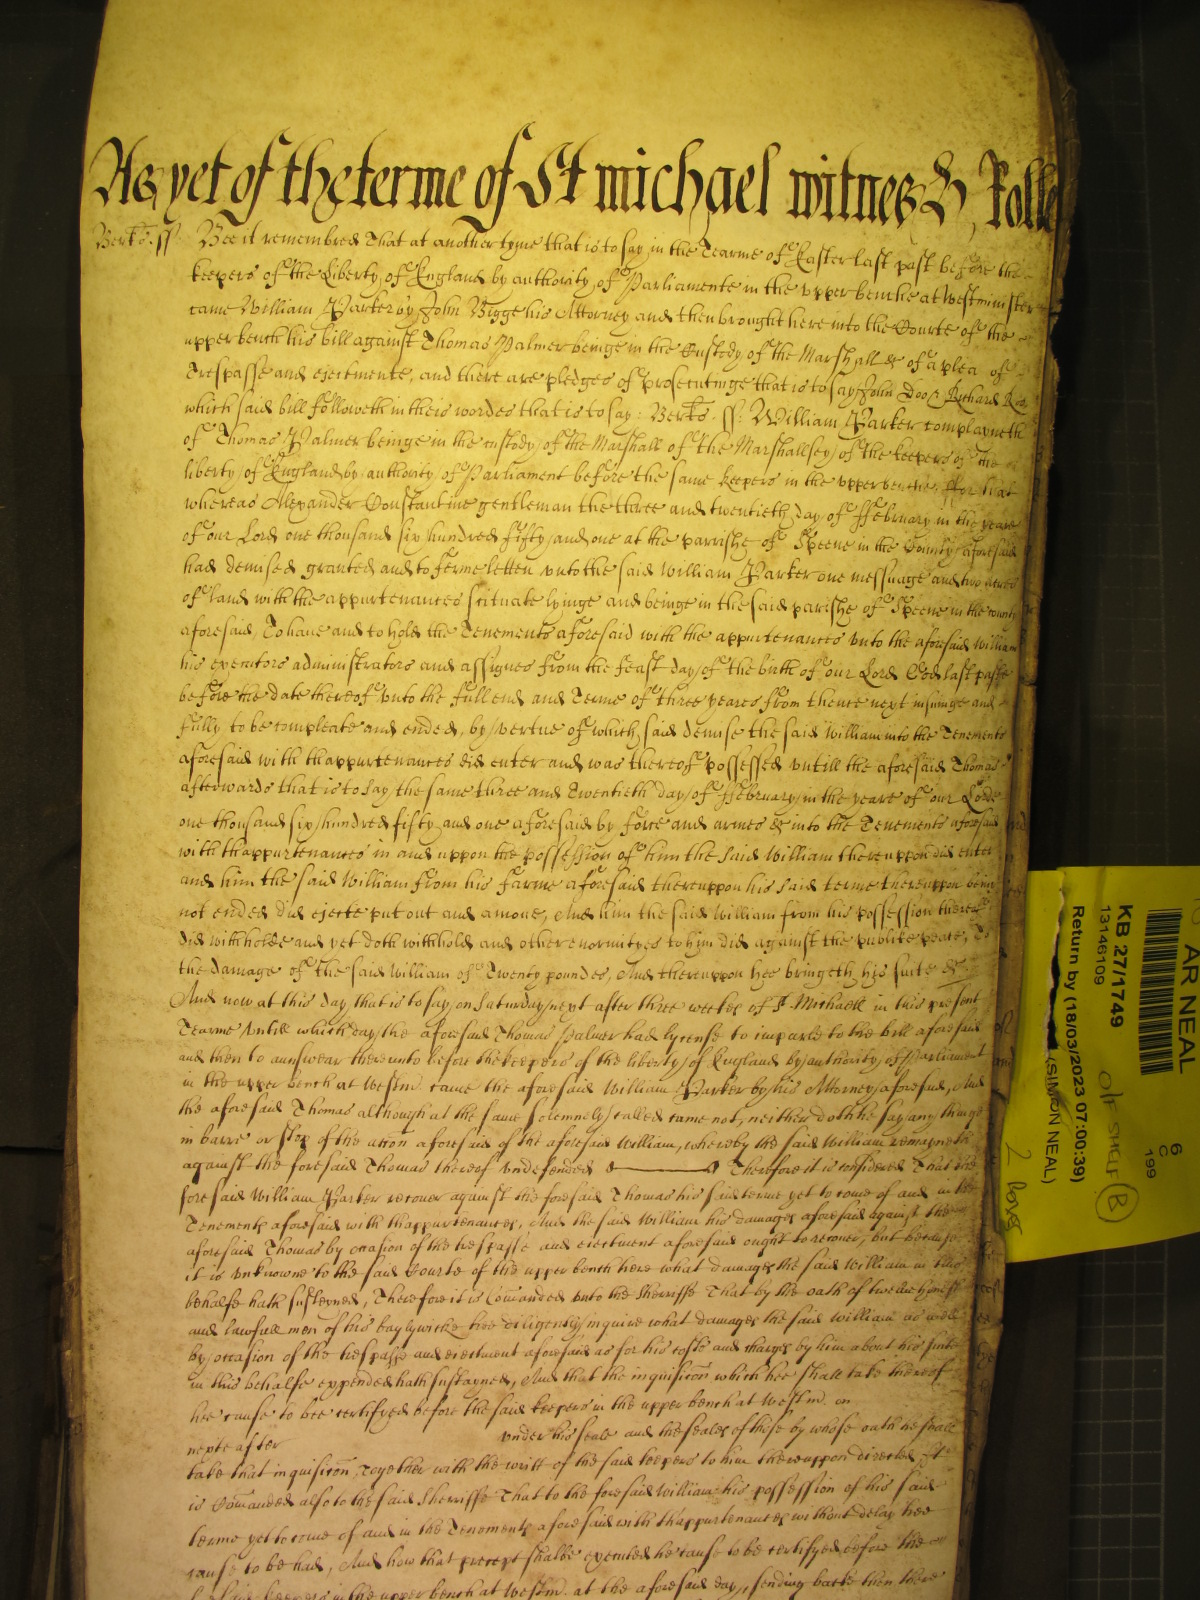 As yet of the terme of St michael witnes H, Rolle
Berks. ss. Bee it remembred That at another tyme that is to say in the Tearme of Easter last past before the
keepers of the Liberty of England by authority of Parliamente in the vpper benche at Westminister
came William Parker by John Bigge his Attorney and then brought here into the Courte of the
vpper bench his bill against Thomas Palmer beinge in the Custody of the Marshall &c of a plea of
Trespasse and ejectmente, and there are pledges of prosecutinge that is to say John Doo & Richard Roo
which said bill followeth in theis wordes that is to say: Berks. ss: William Parker complayneth
of Thomas Palmer beinge in the custody of the Marshall of the Marshallsey of the keepers of the
liberty of England by authority of Parliament before the same keepers in the vpper benche, ffor that
whereas Alexander Constantine gentleman the three and twentieth day of ffebruary in the yeare
of our Lord one thousand six hundred fifty and one at the parrishe of Speene in the County aforesaid
had demised granted and to ferme letten vnto the said William Parker one messuage and two acres
of land with the appurtenances scituate lyinge and beinge in the said parishe of Speene in the county
aforesaid, To haue and to hold the Tenements aforesaid with the appurtenances vnto the aforesaid William
his executors administrators and assignes from the feast day of the birth of our Lord God last paste
before the date thereof vnto the full end and Terme of three yeares from thence next insuinge and
fully to be compleate and ended, by vertue of which said demise the said William into the Tenements
aforesaid with thappurtenances did enter and was thereof possessed vntill the aforesaid Thomas
afterwards that is to say the same three and twentieth day of ffebruary in the yeare of our Lord
one thousand six hundred fifty and one aforesaid by force and armes &c into the Tenements aforesaid
with thappurtenances in and uppon the possession of him the said William thereuppon did enter
and him the said William from his farme aforesaid thereuppon his said terme thereuppon being
not ended did ejecte put out and amove, And him the said William from his possession thereof
did withholde and yet doth withhold and other enormityes to him did against the publike peace, To
the damage of the said William of Twenty poundes, And thereuppon hee bringeth his suite &c.
And now at this day that is to say, on Saturday next after three weekes of St. Michaell in this present
Tearme vntill which day the aforesaid Thomas Palmer had lycense to imparle to the bill aforesaid
and then to aunswear thereunto before the keepers of the liberty of England by authority of Parliament
in the upper bench at Westm. came the aforesaid William Parker by his Attorney aforesaid, And
the aforesaid Thomas although at the same solemnely called came not, neither doth he say any thinge
in barre or stop of the action aforesaid of the aforesaid William, whereby the said William remayneth
against the foresaid Thomas thereof vndefended Therefore it is considered That the
foresaid William Parker recover against the foresaid Thomas his said terme yet to come of and in the
Tenements aforesaid with thappurtenances, And the said William his damages aforesaid against the
aforesaid Thomas by occasion of the trespasse and ejectment aforesaid ought to recover, but because
it is vnknowne to the said Courte of the upper bench here what damages the said William in this
behalfe hath susteyned, Therefore it is Comanded vnto the Sherriffe That by the oath of twelve honest
and lawfull men of his baylywicke hee diligently inquire what damages the said William as well
by occasion of the trespasse and ejectment aforesaid as for his costs and charges by him about his suite
in this behalfe expended hath sustayned, And that the inquisicon which hee shall take thereof
hee cause to bee certifyed before the said keepers in the upper bench at Westm. on
nexte after vnder his seale and the seales of those by whose oath he shall
take that inquisicon, together with the writt of the said keepers to him thereuppon directed, It
is Comanded also to the said Sherriffe That to the foresaid William his possession of his said
terme yet to come of and in the Tenements aforesaid with thappurtenances without delay hee
cause to be had, And how that precept shalbe executed he cause to be certifyed before the
said keepers in the upper bench at Westm. at the aforesaid day, sending backe then there
AR NEAL
6
C
199
KB 27/1749
13146109
Return by (18/03/2023 07:00:39)
(SIMON NEAL)
B